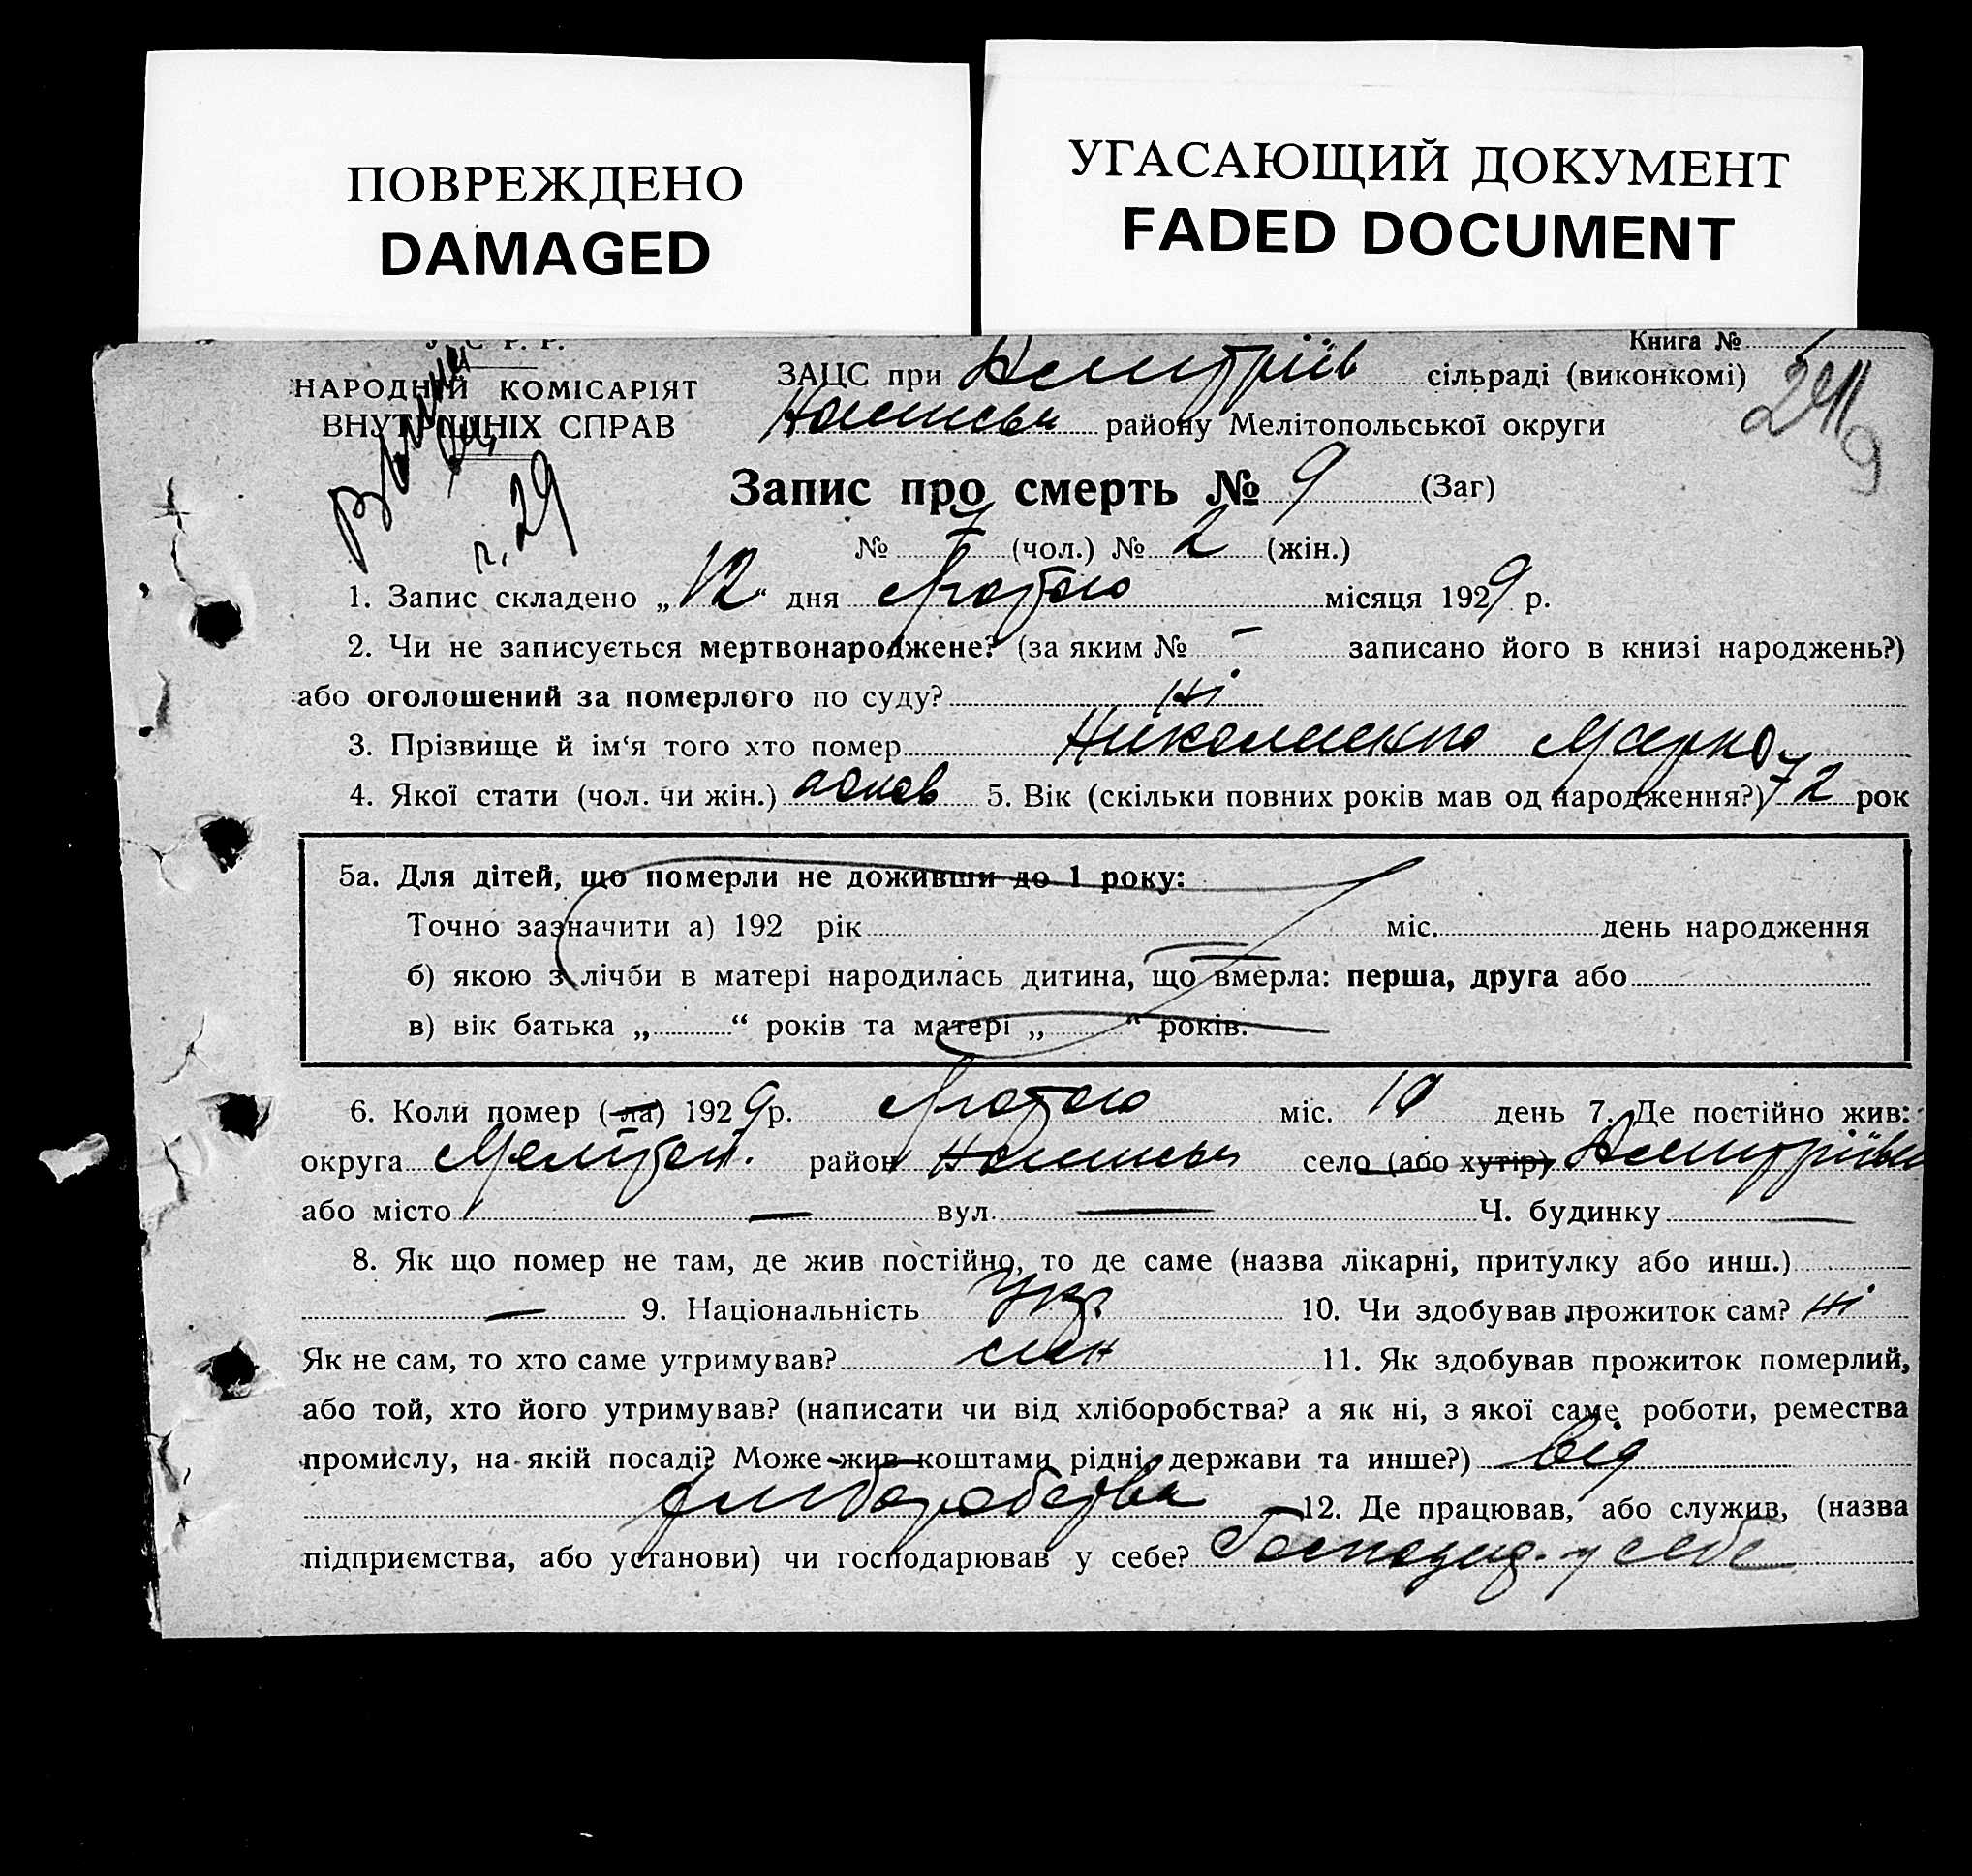 ПОВРЕЖДЕНО
DAMAGED
УГАСАЮЩИЙ ДОКУМЕНТ
FADED DOCUMENT
У. С. Р. Р.
НАРОДНИЙ КОМІСАРІЯТ
ВНУТРІШНІХ СПРАВ
г. 29
Книга №
ЗАЦС при Дмитріїв сільраді (виконкомі)
району Мелітопольської округи
Запис про смерть № 9 (Заг)
№ 7 (чол.) № 2 (жін.)
1. Запис складено „12“ дня Лютого місяця 1929 р.
2. Чи не записується мертвонароджене? (за яким № – записано його в книзі народжень?)
або оголошений за померлого по суду? Ні
3. Прізвище й ім‘я того хто помер Ніколаенко Марко
4. Якої стати (чол. чи жін.) чолов 5. Вік (скільки повних років мав од народження?) 72 рок
5а. Для дітей, що померли не доживши до 1 року:
Точно зазначити а) 192 рік міс. день народження
б) якою з лічби в матері народилась дитина, що вмерла: перша, друга або
в) вік батька „ “ років та матері „ “ років.
6. Коли помер (ла) 1929 р. Лютого міс. 10 день 7. Де постійно жив:
округа Меліт. район село (або хутір) Дмитріївка
або місто — вул. — Ч. будинку —
8. Як що помер не там, де жив постійно, то де саме (назва лікарні, притулку або инш.)
— 9. Національність Укр. 10. Чи здобував прожиток сам? Ні
Як не сам, то хто саме утримував? син 11. Як здобував прожиток померлий,
або той, хто його утримував? (написати чи від хліборобства? а як ні, з якої саме роботи, ремества
промислу, на якій посаді? Може жив коштами рідні, держави та инше?) Від
хліборобства 12. Де працював, або служив, (назва
підприємства, або установи) чи господарював у себе? Господ. у себе